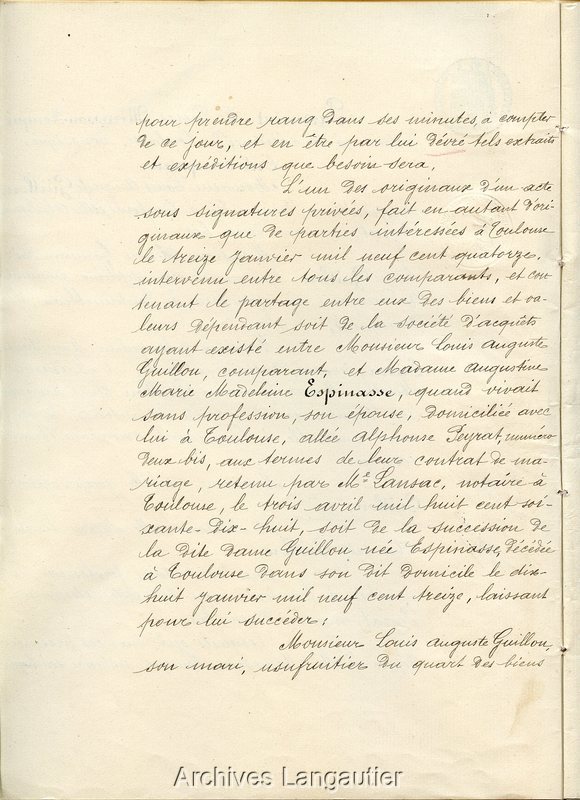 pour prendre rang dans ses minutes, à compter
de ce jour, et en être par lui dévré tels extraits
et expéditions que besoin sera,
L'un des originaux d'un acte
sous signatures privées, fait en autant d'ori-
ginaux que de parties intéressées à Toulouse
le treize janvier mil neuf cent quatorze,
intervenu entre tous les comparants, et con-
tenant le partage entre eux des biens et va-
leurs dépendant soit de la société d'acquêts
ayant existé entre Monsieur Louis Auguste
Guillon, comparant, et Madame Augustine
Marie Madeleine Espinasse, quand vivait
sans profession, son épouse, domiciliée avec
lui à Toulouse, allée Alphonse Peyrat, numéro
deux bis, aux termes de leur contrat de ma-
riage, retenu par Me Lansac, notaire à
Toulouse, le trois avril mil huit cent soi-
xante-dix-huit, soit de la succession de
la dite dame Guillon née Espinasse, décédée
à Toulouse dans son dit domicile le dix-
huit janvier mil neuf cent treize, laissant
pour lui succéder:
Monsieur Louis Auguste Guillon,
son mari, usufruitier du quart des biens
Archives Langautier